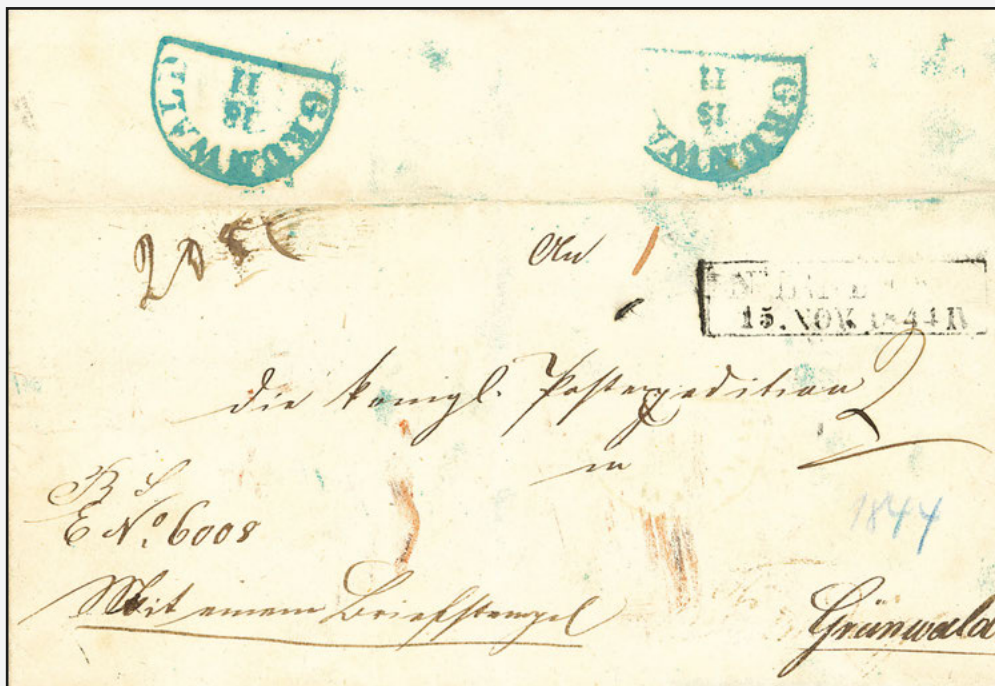 GRÜNWALD
18
11
GRÜNW
18
11
An
15. NOV. 1844 N
die königl. Postexpedition
in
R S
E No. 6008
1844
Mit einem Briefstempel
Grünwald